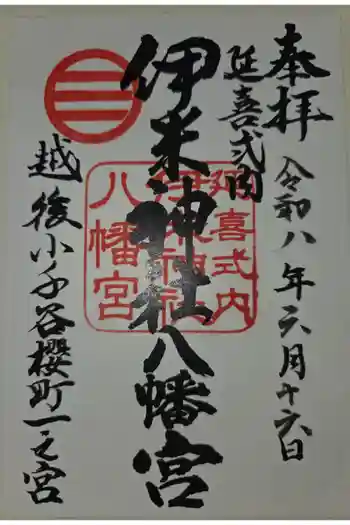 奉拝
延喜式内
令和八年六月十六日
伊米神社八幡宮
延喜式内
伊米神社
八幡宮
越後小千谷櫻町一之宮